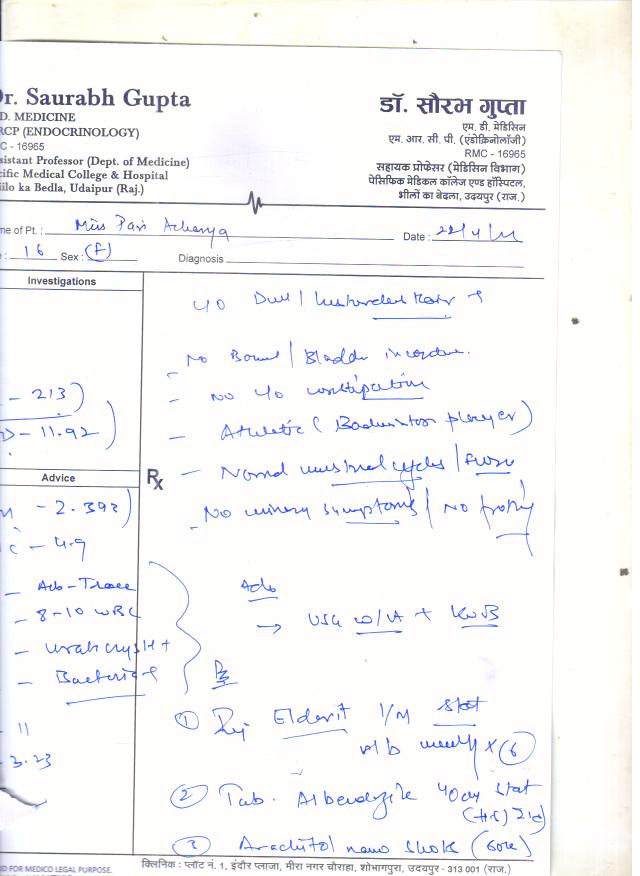 r. Saurabh Gupta
D. MEDICINE
RCP (ENDOCRINOLOGY)
C - 16965
sistant Professor (Dept. of Medicine)
ific Medical College & Hospital
iilo ka Bedla, Udaipur (Raj.)
डॉ. सौरभ गुप्ता
एम. डी. मेडिसिन
एम. आर. सी. पी. (एंडोक्रिनोलॉजी)
RMC - 16965
सहायक प्रोफेसर (मेडिसिन विभाग)
पेसिफिक मेडिकल कॉलेज एण्ड हॉस्पिटल,
भीलों का बेदला, उदयपुर (राज.)
me of Pt. : Miss Pari Acharya
Date : 22/4/
: 16 Sex : (F)
Diagnosis
Investigations
- 213)
D - 11.92)
Advice
- 2.393)
C - 4.9
- Alb - Trace
- 8-10 WBC
- crystal +
- Bacteria +
- 11
- 3.23
Rx
- No Bowel / Bladder
- No H/o constipation
- Athletic (Badminton player)
- Normal menstrual cycles /
- No urinary symptoms / No
Adv
→ USG W/A + KUB
Rx
① Inj Elderit I/M stat
weekly x 6
② Tab. Albendazole 400 stat
(HS)
③ Arachitol nano shots (60K)
D FOR MEDICO LEGAL PURPOSE.
क्लिनिक : प्लॉट नं. 1, इंदौर प्लाजा, मीरा नगर चौराहा, शोभागपुरा, उदयपुर - 313 001 (राज.)